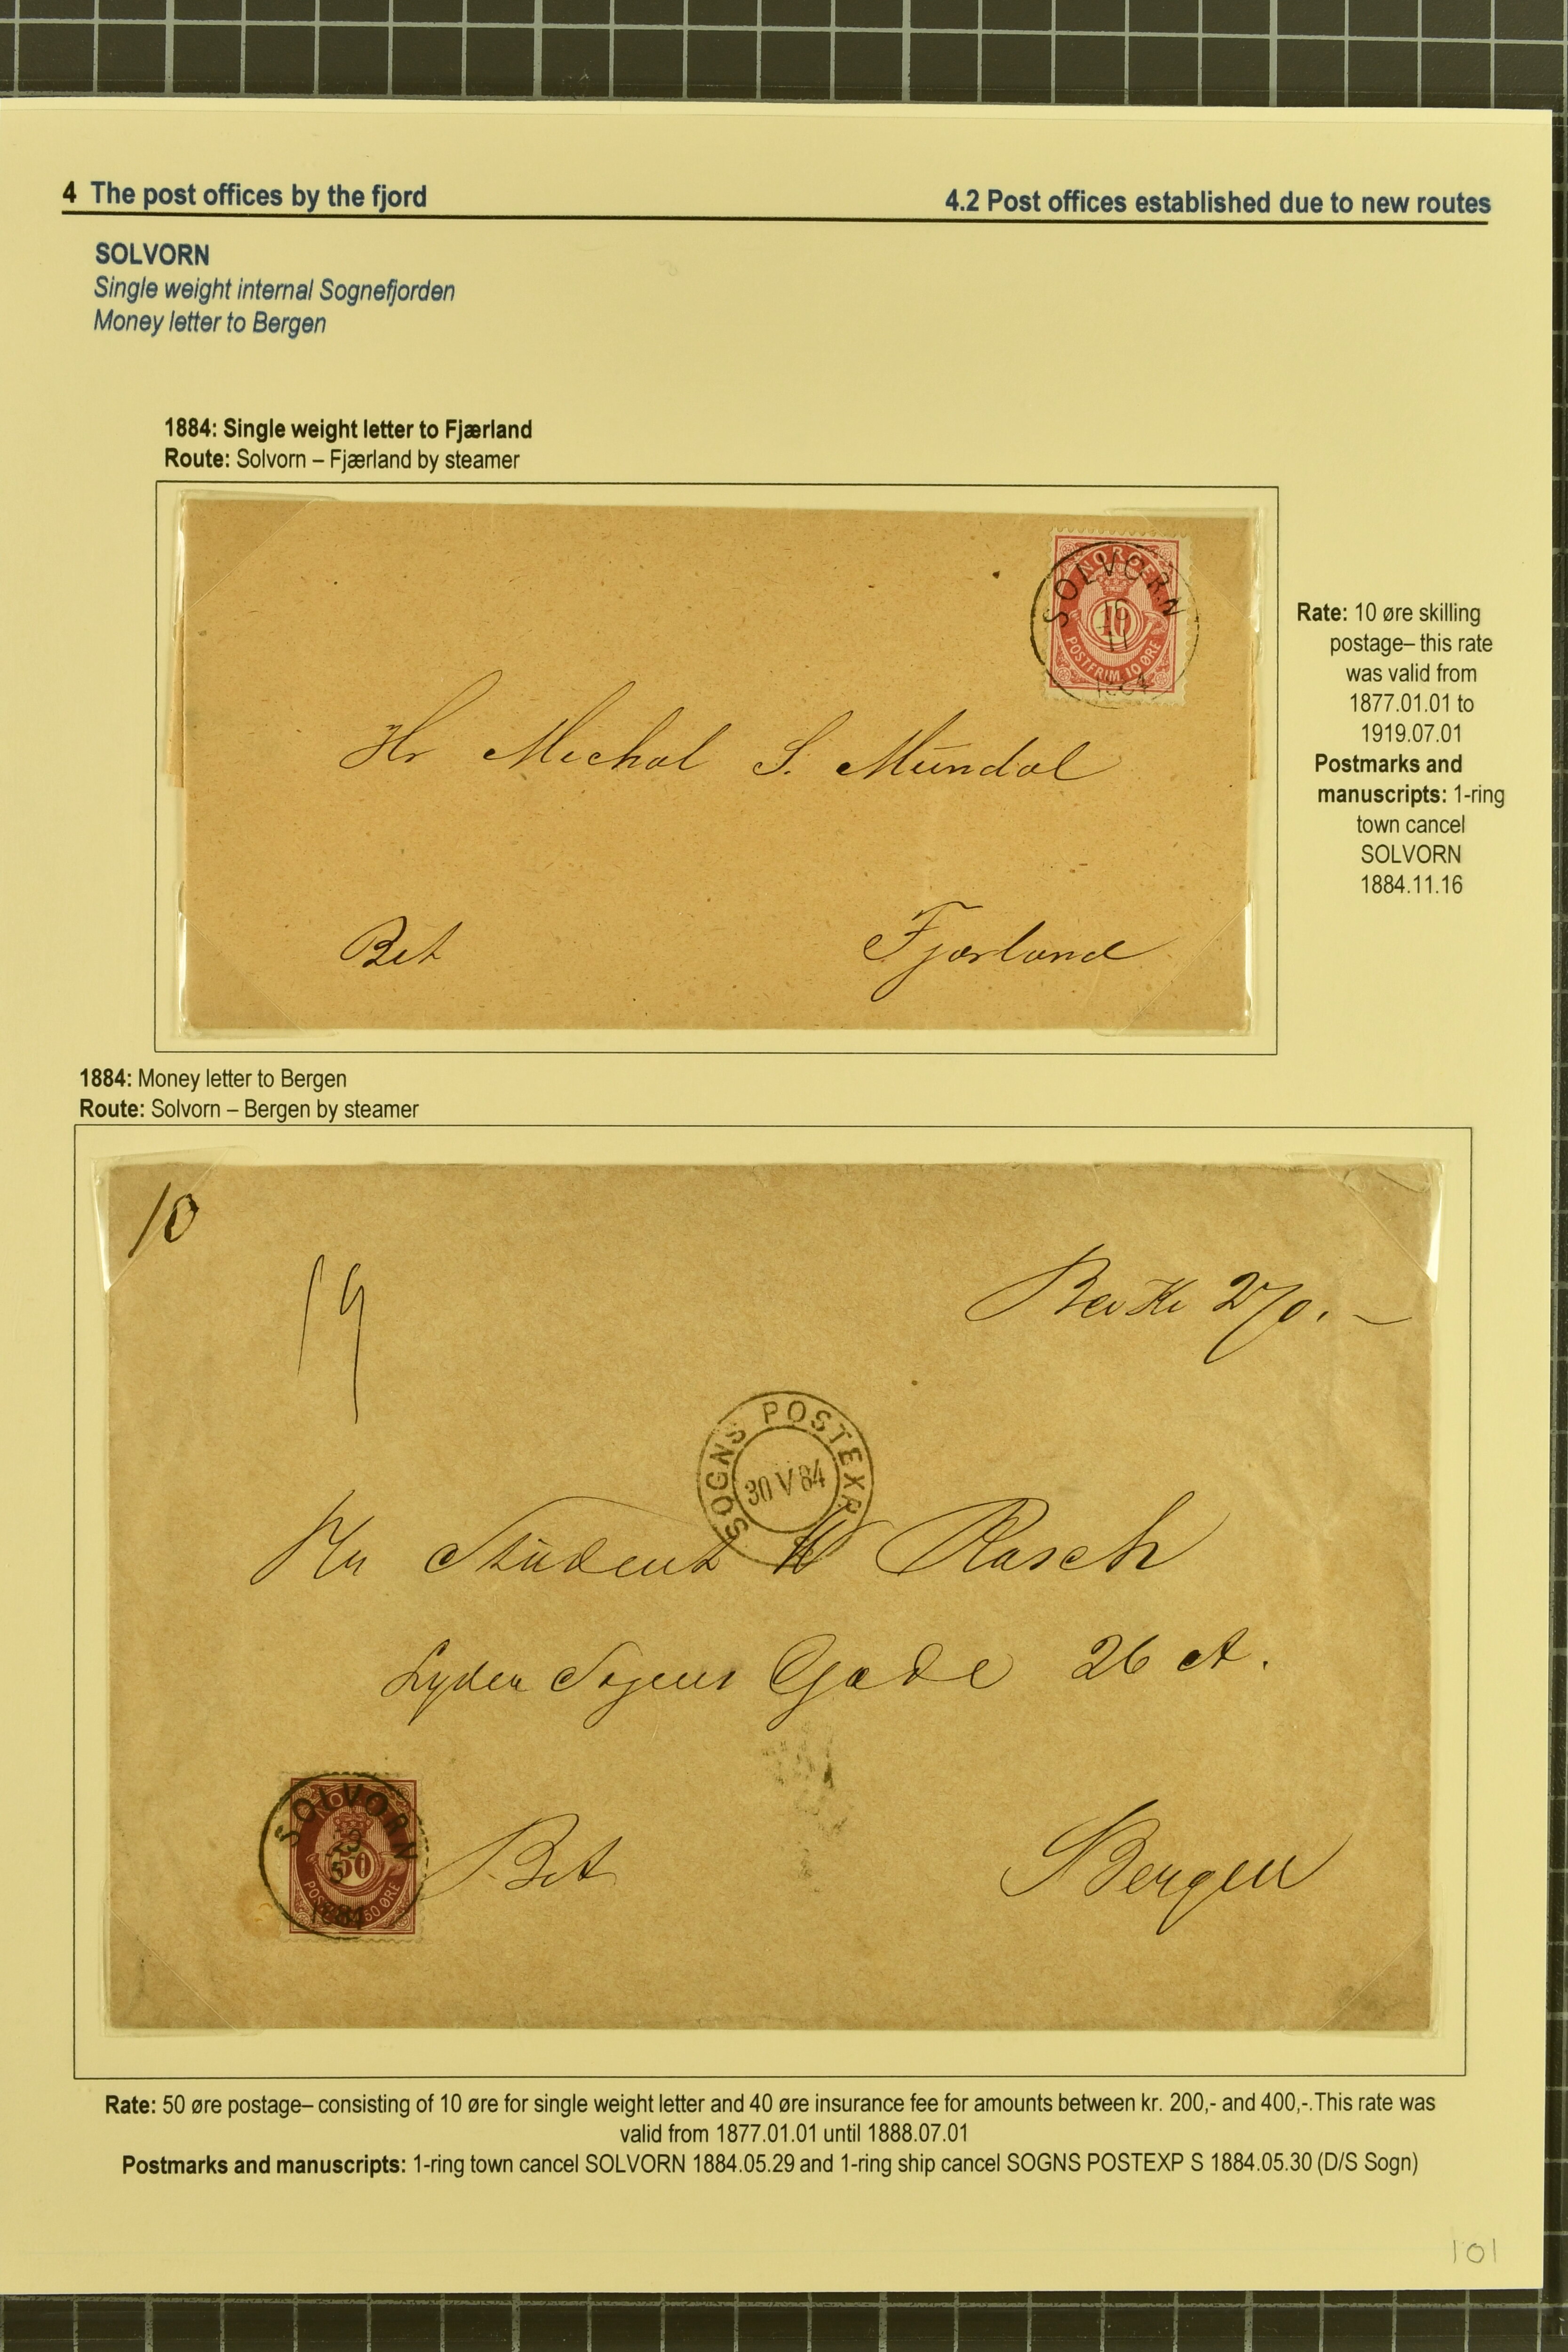 4 The post offices by the fjord
4.2 Post offices established due to new routes
SOLVORN
Single weight internal Sognefjorden
Money letter to Bergen
1884: Single weight letter to Fjærland
Route: Solvorn – Fjærland by steamer
NORGE
SOLVORN
16
11
1884
10
POSTFRIM. 10 ØRE
Hr Michal S. Mündal
Bet
Fjærland
Rate: 10 øre skilling
postage– this rate
was valid from
1877.01.01 to
1919.07.01
Postmarks and
manuscripts: 1-ring
town cancel
SOLVORN
1884.11.16
1884: Money letter to Bergen
Route: Solvorn – Bergen by steamer
10
19
270.–
SOGNS POSTEXP
30 V 84
S
Hr Student Rasch
Lyder Sagens Gade 26 A.
SOLVORN
50
50 ØRE
Bet
Bergen
Rate: 50 øre postage– consisting of 10 øre for single weight letter and 40 øre insurance fee for amounts between kr. 200,- and 400,-.This rate was
valid from 1877.01.01 until 1888.07.01
Postmarks and manuscripts: 1-ring town cancel SOLVORN 1884.05.29 and 1-ring ship cancel SOGNS POSTEXP S 1884.05.30 (D/S Sogn)
101